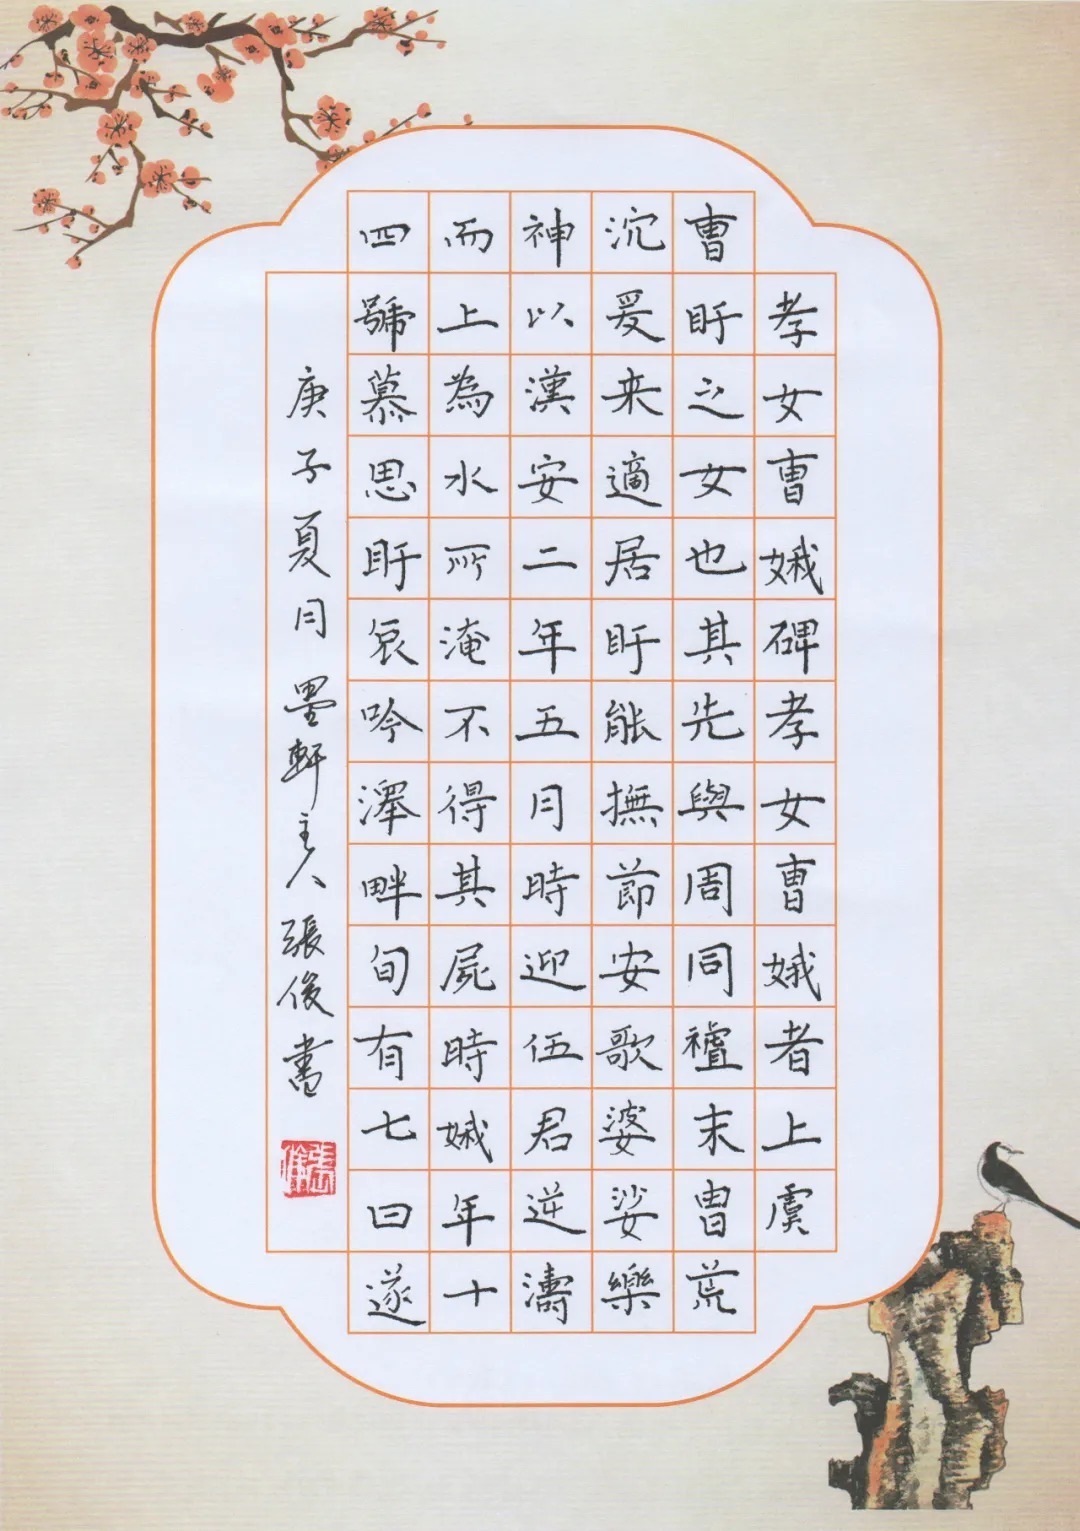 孝女曹娥碑孝女曹娥者上虞
曹盱之女也其先與周同禮末胄荒
沉爰来適居盱能撫節安歌婆娑樂
神以漢安二年五月時迎伍君逆濤
而上為水所淹不得其屍時娥年十
四號慕思盱哀吟澤畔旬有七日遂
庚子夏月墨軒主人張俊書
張俊